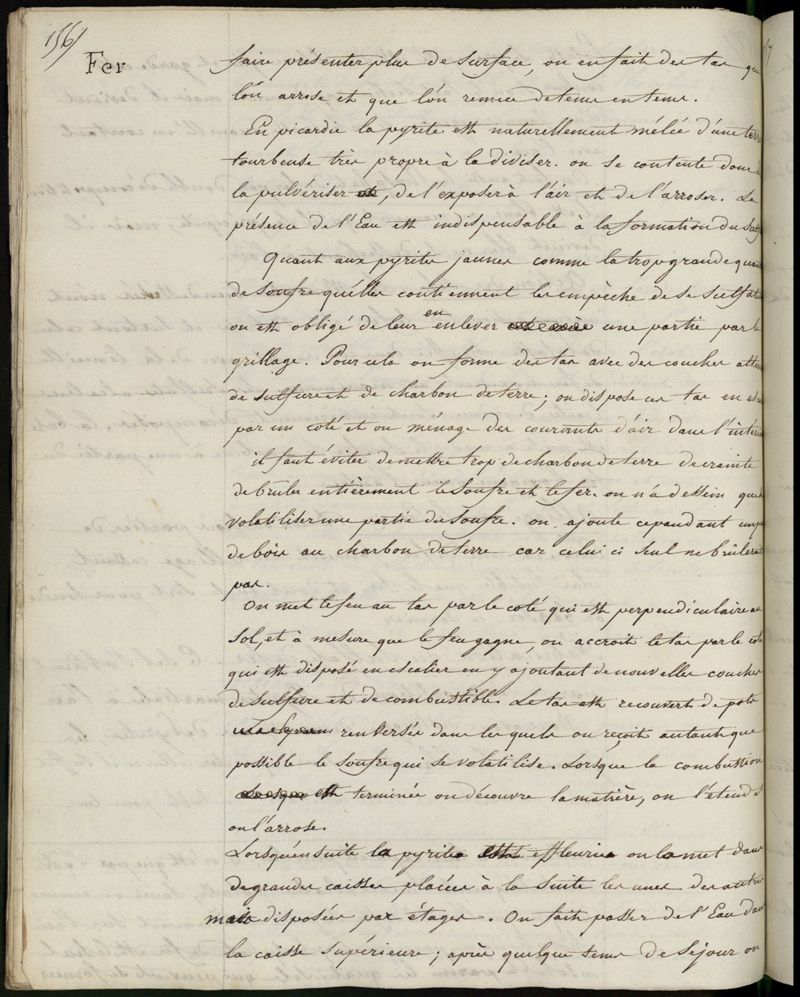 156/
Fer
faire présenter plus de surface, on en fait des tas que
l'on arrose et que l'on remue de tems en tems.
En picardie la pyrite est naturellement mélée d'une terre
tourbeuse très propre à la diviser. on se contente donc
la pulvériser, de l'exposer à l'air et de l'arroser. La
présence de l'Eau est indispensable à la formation du
Quant aux pyrites jaunes comme la trop grande
de soufre qu'elles contiennent les empèche de se
on est obligé de leur en enlever une partie par le
grillage. Pour cela on forme des tas avec des couches
de sulfure et de charbon de terre ; on dispose ces tas en
par un coté et on ménage des courants d'air dans
il faut éviter de mettre trop de charbon de terre de crainte
de brûler entièrement le Soufre et le fer. on n'a dessein que
volatiliser une partie du Soufre. on ajoute cependant un
de bois au charbon de terre car celui ci seul ne brûlerait
pas.
On met le feu au tas par le coté qui est perpendiculaire au
sol, et à mesure que le feu gagne, on accroit le tas par le coté
qui est disposé en escalier en y ajoutant de nouvelles couches
de sulfure et de combustible. Le tas est recouvert de pots
renversés dans lesquels on reçoit autant que
possible le soufre qui se volatilise. Lorsque la combustion
est terminée on découvre la matière, on l'étend et
on l'arrose.
Lorsqu'ensuite la pyrite est effleurie on la met dans
de grandes caisses placées à la suite les unes des autres
mais disposées par étages. On fait passer de l'Eau dans
la caisse supérieure ; après quelque tems de séjour on